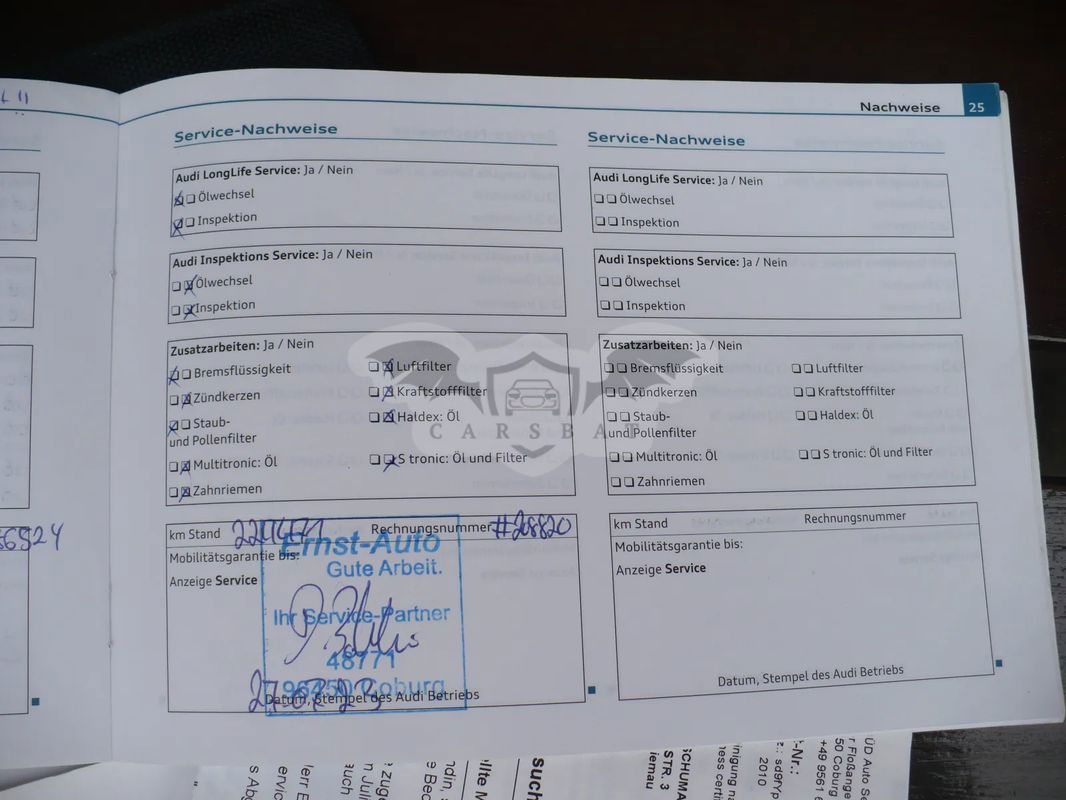 Nachweise 25
Service-Nachweise
Audi LongLife Service: Ja / Nein
Ölwechsel
Inspektion
Audi Inspektions Service: Ja / Nein
Ölwechsel
Inspektion
Zusatzarbeiten: Ja / Nein
Bremsflüssigkeit
Luftfilter
Zündkerzen
Kraftstofffilter
Staub-
und Pollenfilter
Haldex: Öl
Multitronic: Öl
S tronic: Öl und Filter
Zahnriemen
km Stand
Rechnungsnummer #208820
Mobilitätsgarantie bis:
Anzeige Service
Ernst-Auto
Gute Arbeit.
Ihr Service-Partner
48771
96450 Coburg
Datum, Stempel des Audi Betriebs
Service-Nachweise
Audi LongLife Service: Ja / Nein
Ölwechsel
Inspektion
Audi Inspektions Service: Ja / Nein
Ölwechsel
Inspektion
Zusatzarbeiten: Ja / Nein
Bremsflüssigkeit
Luftfilter
Zündkerzen
Kraftstofffilter
Staub-
und Pollenfilter
Haldex: Öl
Multitronic: Öl
S tronic: Öl und Filter
Zahnriemen
km Stand
Rechnungsnummer
Mobilitätsgarantie bis:
Anzeige Service
Datum, Stempel des Audi Betriebs
CARSBAT
56524
such
STR. 3
2010
50 Coburg
+49 9561 6